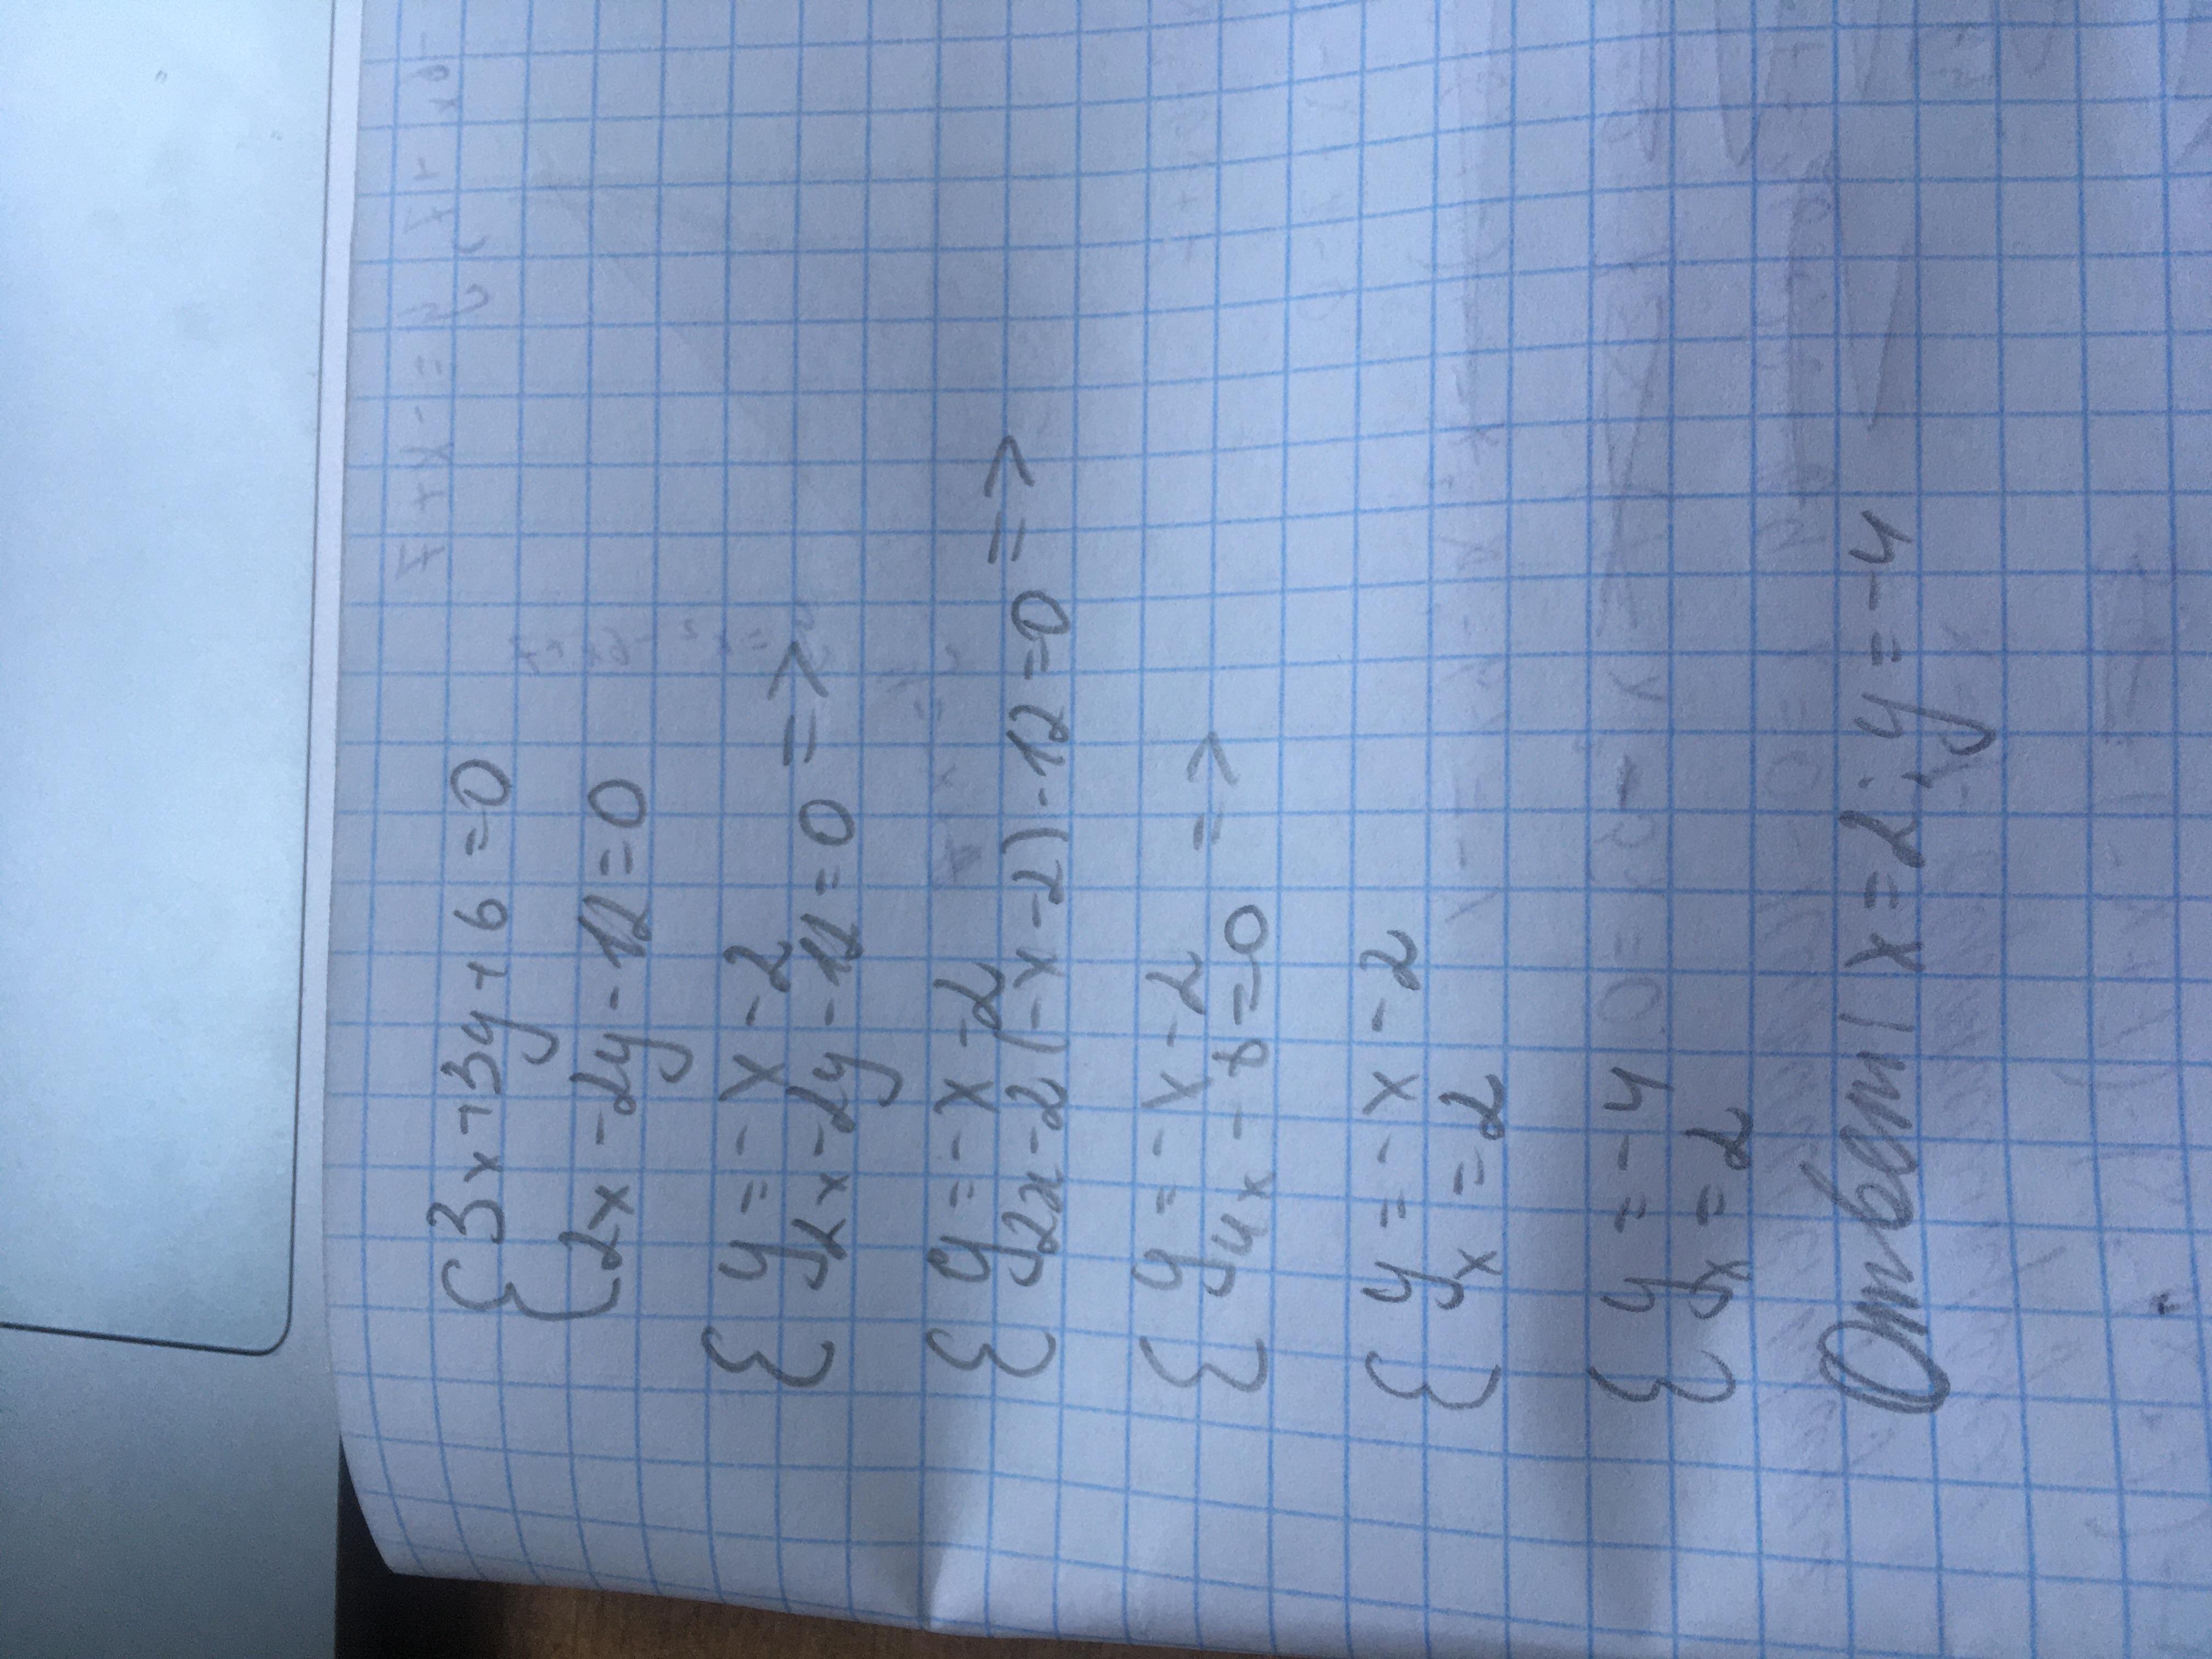 {3x+3y+6=0
{2x-2y-12=0
{y=-x-2
2x-2y-12=0 =>
{y=-x-2
2x-2(-x-2)-12=0 =>
{y=-x-2
4x-8=0 =>
{y=-x-2
x=2
{y=-4
x=2
Ответ x=2; y=-4